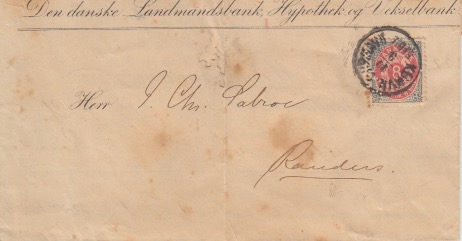 Den danske Landmandsbank, Hypothek og Vekselbank.
8
Herr J. Chr. Sabroe
Randers.